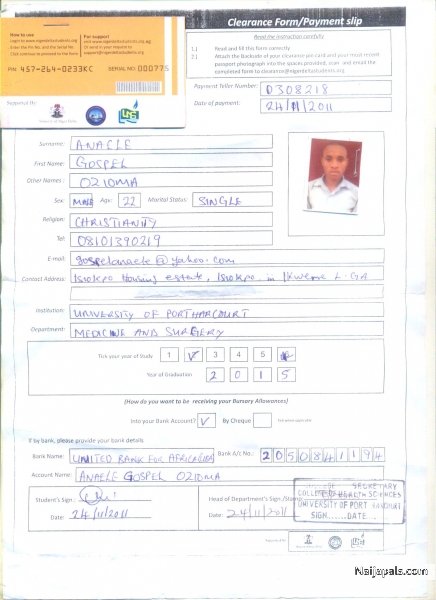 How to use
Login to www.nigerdeltastudents.org.ng
Enter the Pin No. and the Serial No.
Click continue to proceed to the form
For support
visit www.nigerdeltastudents.org.ng
Or send in your request to
PIN: 457-264-0233KC SERIAL NO: 000775
Supported By:
Clearance Form/Payment slip
Read the instruction carefully
1.) Read and fill this form correctly
2.) Attach the Backside of your clearance pin card and your most recent
passport photograph into the spaces provided, scan and email the
completed form to clearance@nigerdeltastudents.org
Payment Teller Number: 0308218
Date of payment: 24/11/2011
Surname: ANAELE
First Name: GOSPEL
Other Names: OZIOMA
Sex: MALE Age: 22 Marital Status: SINGLE
Religion: CHRISTIANITY
Tel: 08101390219
E-mail: gospelanaele@yahoo.com
Contact Address: Isiokpo Housing estate, Isiokpo in Ikwerre L.GA
Institution: UNIVERSITY OF PORTHARCOURT
Department: MEDICINE AND SURGERY
Tick your year of Study 1 3 4 5
Year of Graduation 2 0 1 5
(How do you want to be receiving your Bursary Allowances)
Into your Bank Account? By Cheque
If by bank, please provide your bank details
Bank Name: UNITED BANK FOR AFRICA(UBA) Bank A/c No.: 2050841194
Account Name: ANAELE GOSPEL OZIOMA
Student's Sign.:
Date: 24/11/2011
Head of Department's Sign./Stamp
Date: 24/11/2011
SECRETARY
COLLEGE OF HEALTH SCIENCES
UNIVERSITY OF PORT HARCOURT
SIGN......DATE
Naijapals.com